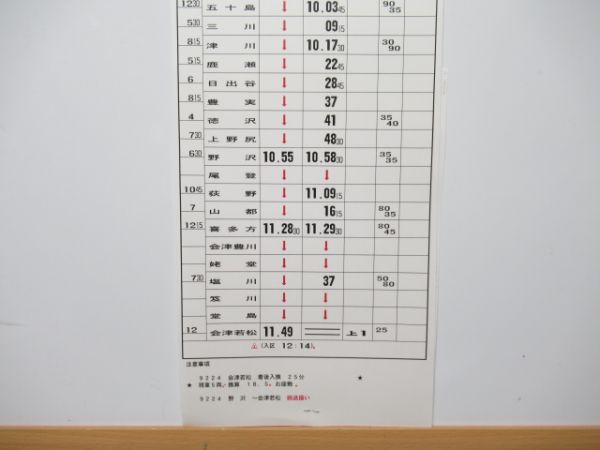 1230 五十島 ↓ 10.03 45 90 35
530 三川 ↓ 09 15
815 津川 ↓ 10.17 30 30 90
515 鹿瀬 ↓ 22 45
6 日出谷 ↓ 28 45
815 豊実 ↓ 37
4 徳沢 ↓ 41 35 40
730 上野尻 ↓ 48 00
630 野沢 10.55 10.58 00 35 35
尾登 ↓ ↓
1045 荻野 ↓ 11.09 15
7 山都 ↓ 16 15 80 35
1215 喜多方 11.28 00 11.29 00 80 45
会津豊川 ↓ ↓
姥堂 ↓ ↓
730 塩川 ↓ 37 50 80
笈川 ↓ ↓
堂島 ↓ ↓
12 会津若松 11.49 上1 25
△(入区 12:14)。
注意事項
9224 会津若松 着後入換 25分 ★
★ 現車5両、換算 18.5。
9224 野沢 ~会津若松 回送扱い